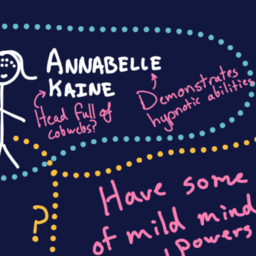 ANNABELLE
KAINE
Head full of
cobwebs?
Demonstrates
hypnotic abilities
?
Have some
of mild mind
powers